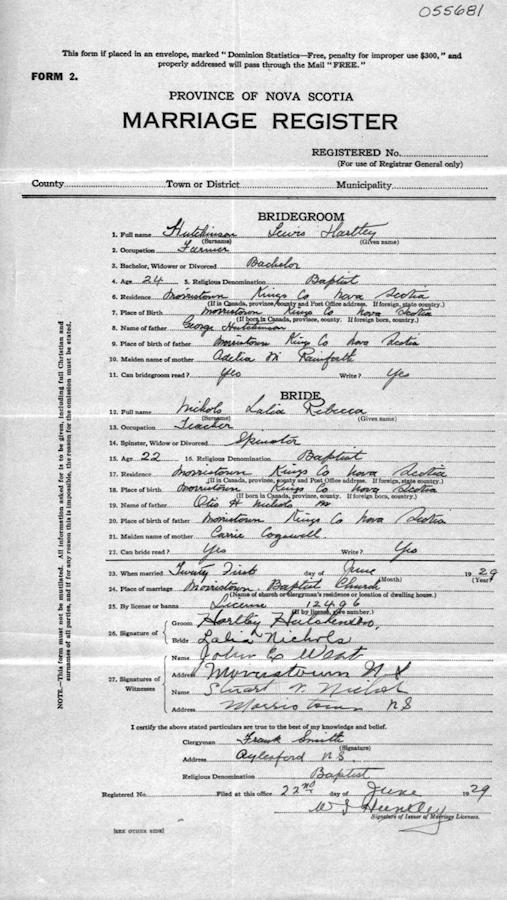 055681
This form if placed in an envelope, marked "Dominion Statistics—Free, penalty for improper use $300," and
properly addressed will pass through the Mail "FREE."
FORM 2.
PROVINCE OF NOVA SCOTIA
MARRIAGE REGISTER
REGISTERED No.
(For use of Registrar General only)
County Town or District Municipality
BRIDEGROOM
1. Full name Hutchinson Lewis Hartley
(Surname) (Given name)
2. Occupation Farmer
3. Bachelor, Widower or Divorced Bachelor
4. Age 24 5. Religious Denomination Baptist
6. Residence Morristown Kings Co Nova Scotia
(If in Canada, province, county and Post Office address. If foreign, state country.)
7. Place of Birth Morristown Kings Co Nova Scotia
(If born in Canada, province, county. If foreign born, country.)
8. Name of father George Hutchinson
9. Place of birth of father Morristown Kings Co Nova Scotia
10. Maiden name of mother Adelia M Rainforth
11. Can bridegroom read? Yes Write? Yes
BRIDE
12. Full name Nichols Lalia Rebecca
(Surname) (Given name)
13. Occupation Teacher
14. Spinster, Widow or Divorced Spinster
15. Age 22 16. Religious Denomination Baptist
17. Residence Morristown Kings Co Nova Scotia
(If in Canada, province, county and Post Office address. If foreign, state country.)
18. Place of birth Morristown Kings Co Nova Scotia
(If born in Canada, province, county. If foreign born, country.)
19. Name of father Otis H Nichols
20. Place of birth of father Morristown Kings Co Nova Scotia
21. Maiden name of mother Carrie Cogswell
22. Can bride read? Yes Write? Yes
23. When married Twenty First day of June 1929
(Month) (Year)
24. Place of marriage Morristown Baptist Church
(Name of church or clergyman's residence or location of dwelling house.)
25. By license or banns License 12496
(If by license, give number.)
26. Signature of Groom Hartley Hutchinson
Bride Lalia Nichols
27. Signatures of Witnesses
Name John E West
Address Morristown N S
Name Stuart Nichols
Address Morristown NS
I certify the above stated particulars are true to the best of my knowledge and belief.
Clergyman Frank Smith
(Signature)
Address Aylesford N.S.
Religious Denomination Baptist
Registered No. Filed at this office 22nd day of June 1929
Signature of Issuer of Marriage Licenses.
[SEE OTHER SIDE]
NOTE.—This form must not be mutilated. All information asked for is to be given, including full Christian and
surnames of all parties, and if for any reason this is impossible, the reason for the omission must be stated.